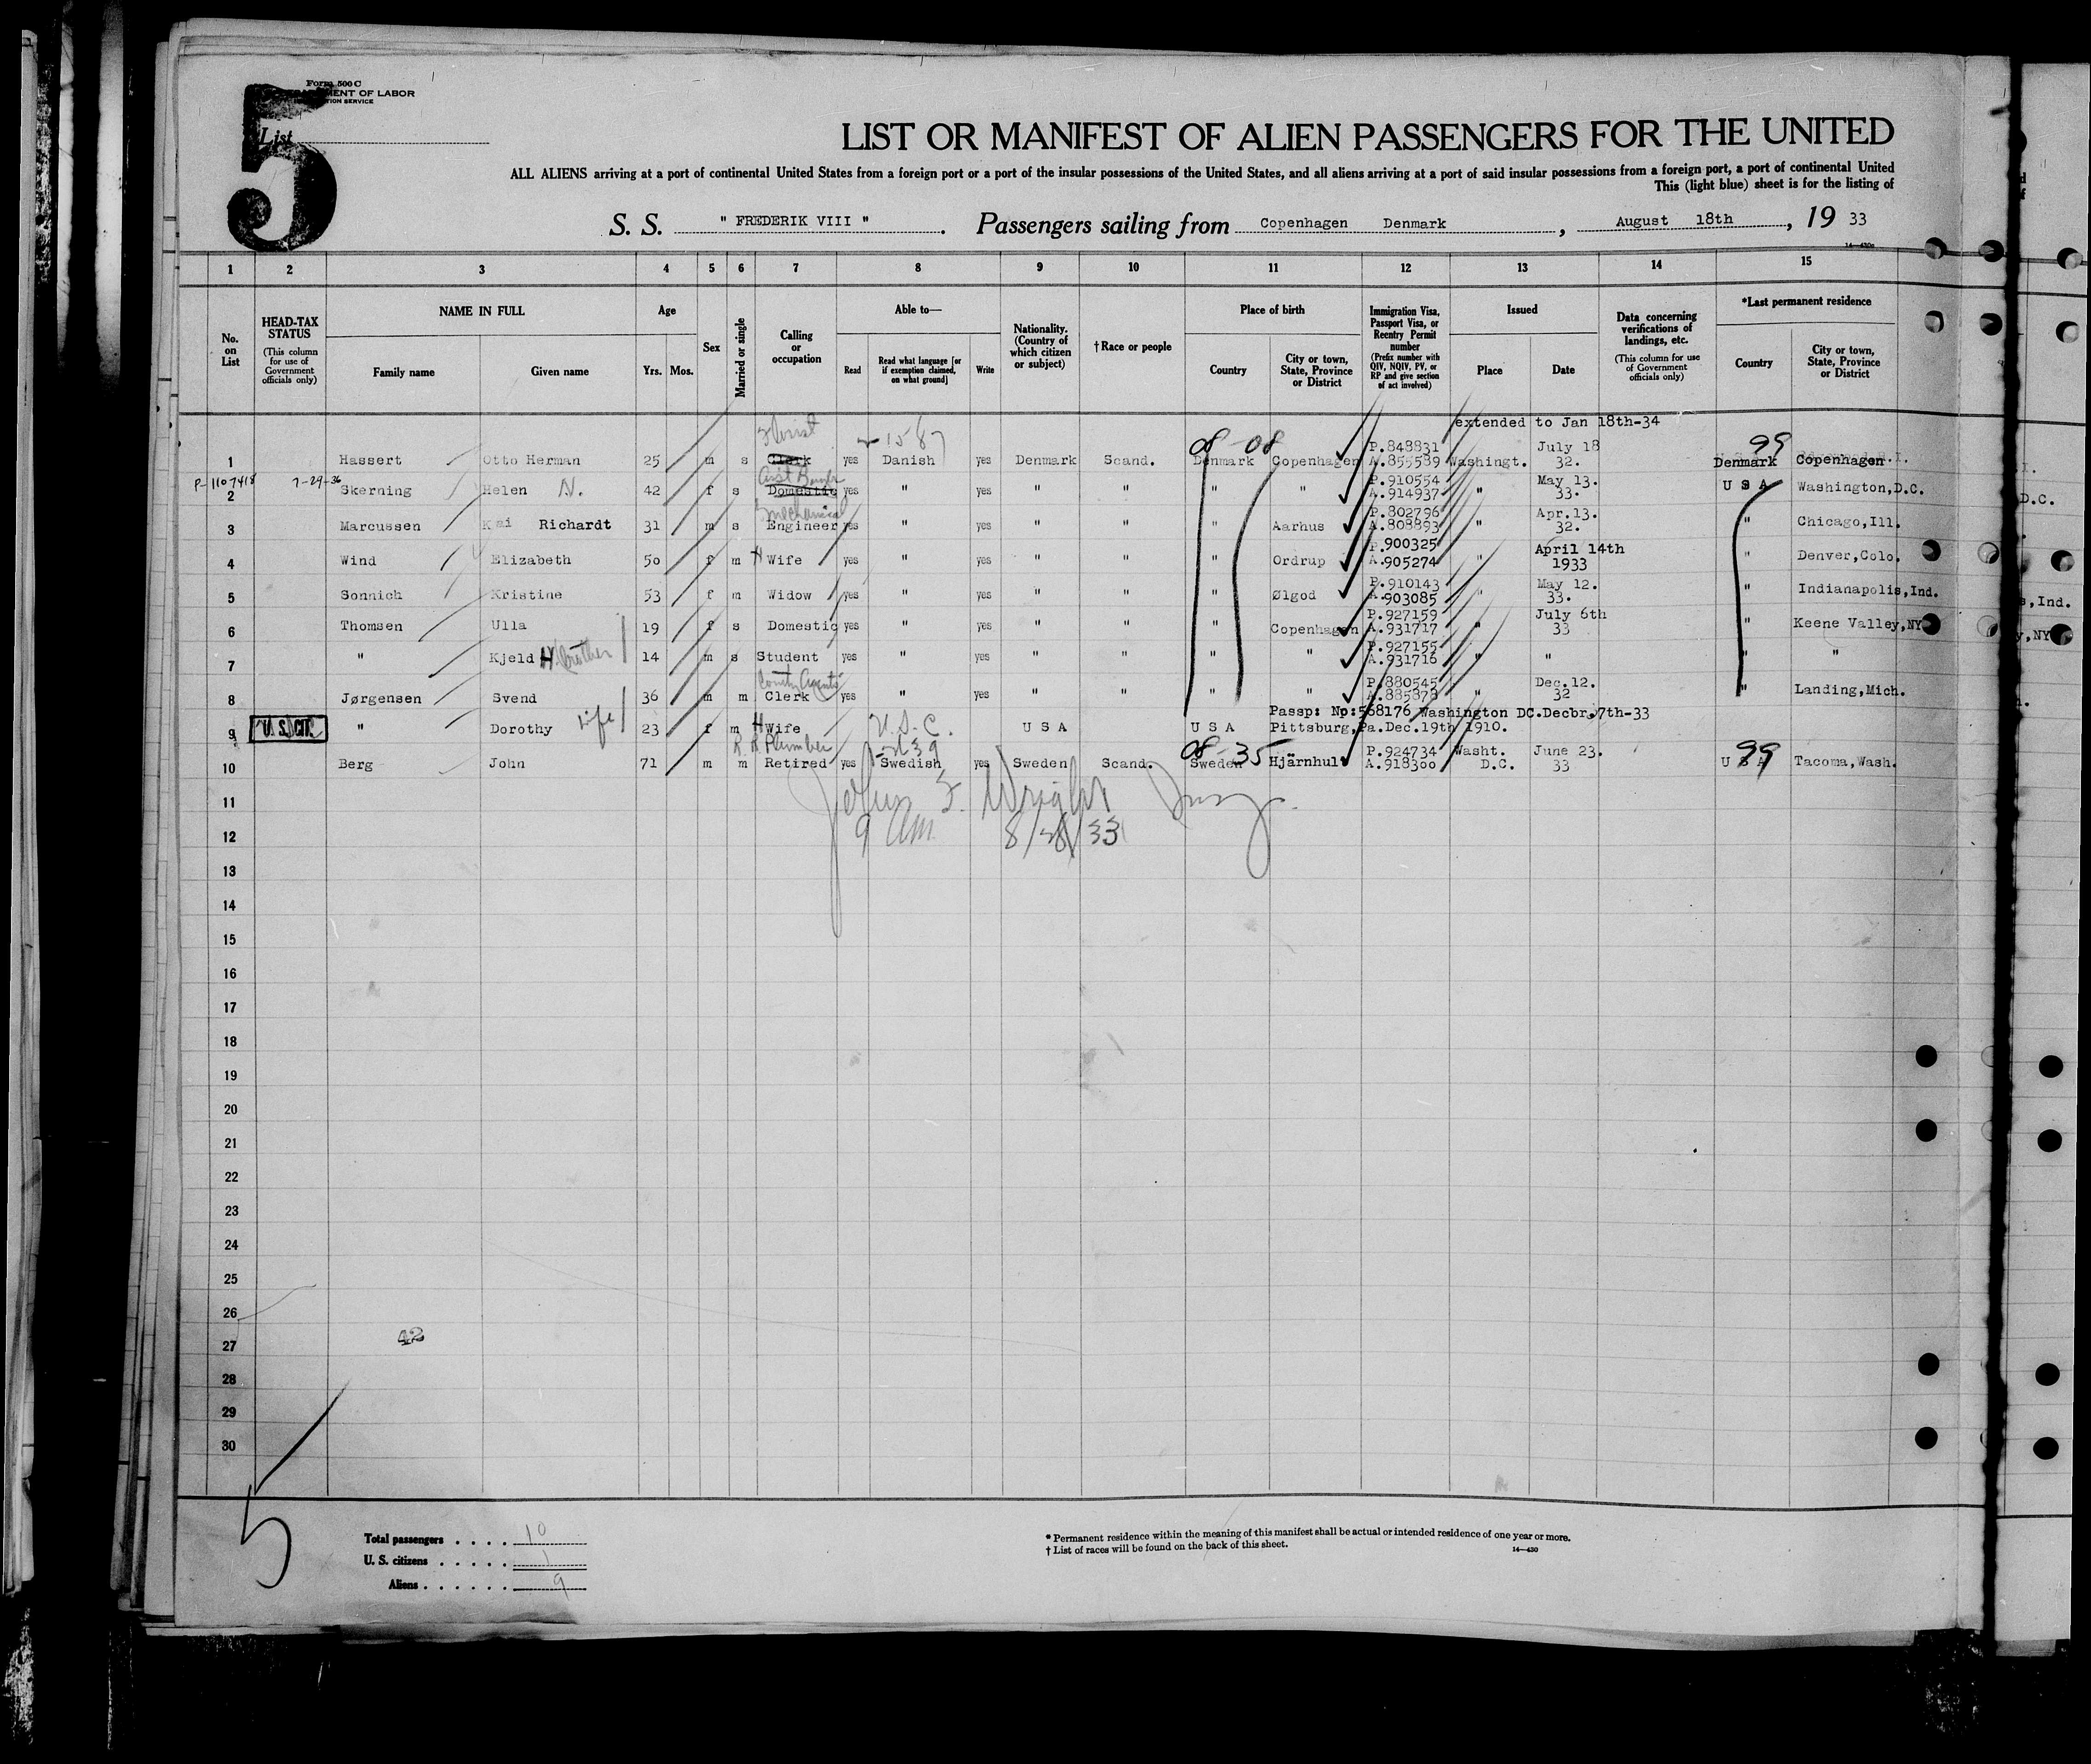 Form 500 C
MENT OF LABOR
TION SERVICE
5
List
LIST OR MANIFEST OF ALIEN PASSENGERS FOR THE UNITED
ALL ALIENS arriving at a port of continental United States from a foreign port or a port of the insular possessions of the United States, and all aliens arriving at a port of said insular possessions from a foreign port, a port of continental United
This (light blue) sheet is for the listing of
S. S. " FREDERIK VIII ". Passengers sailing from Copenhagen Denmark, August 18th, 19 33
1 2 3 4 5 6 7 8 9 10 11 12 13 14 15
No. on List
HEAD-TAX STATUS (This column for use of Government officials only)
NAME IN FULL
Family name Given name
Age
Yrs. Mos.
Sex
Married or single
Calling or occupation
Able to—
Read Read what language [or if exemption claimed, on what ground] Write
Nationality. (Country of which citizen or subject)
†Race or people
Place of birth
Country City or town, State, Province or District
Immigration Visa, Passport Visa, or Reentry Permit number (Prefix number with QIV, NQIV, PV, or RP and give section of act involved)
Issued
Place Date
Data concerning verifications of landings, etc. (This column for use of Government officials only)
*Last permanent residence
Country City or town, State, Province or District
extended to Jan 18th-34
08-08 P.848831 July 18 99
1 Hassert Otto Herman 25 m s Clerk yes Danish yes Denmark Scand. Denmark Copenhagen A.855589 Washingt. 32. Denmark Copenhagen
P-1107418 7-29-36 P.910554 May 13.
2 Skerning Helen N. 42 f s Domestic yes " yes " " " " A.914937 " 33. U S A Washington,D.C.
mechanical P.802796 Apr.13.
3 Marcussen Kai Richardt 31 m s Engineer yes " yes " " " Aarhus A.808893 " 32. " Chicago,Ill.
P.900325 April 14th
4 Wind Elizabeth 50 f m H Wife yes " yes " " " Ordrup A.905274 " 1933 " Denver,Colo.
P.910143 May 12.
5 Sonnich Kristine 53 f m Widow yes " yes " " " Ølgod A.903085 " 33. " Indianapolis,Ind.
P.927159 July 6th
6 Thomsen Ulla 19 f s Domestic yes " yes " " " Copenhagen A.931717 " 33 " Keene Valley,NY
P.927155
7 " Kjeld H brother 14 m s Student yes " yes " " " " A.931716 " " " "
County Agents P.880545 Dec.12.
8 Jørgensen Svend 36 m m Clerk yes " yes " " " " A.885878 " 32 " Landing,Mich.
Passp: No:568176 Washington DC.Decbr.7th-33
9 U.S. CIT. " Dorothy Wife 23 f m H Wife U.S.C. U S A U S A Pittsburg,Pa.Dec.19th 1910.
R.R. Plumber 08-35 P.924734 Washt. June 23. 99
10 Berg John 71 m m Retired yes Swedish yes Sweden Scand. Sweden Hjärnhult A.918300 D.C. 33 U S A Tacoma,Wash.
11 John F. Wright
12 9 am 8/28/33
13
14
15
16
17
18
19
20
21
22
23
24
25
26
27 42
28
29
30
5
Total passengers 10
U. S. citizens 1
Aliens 9
* Permanent residence within the meaning of this manifest shall be actual or intended residence of one year or more.
† List of races will be found on the back of this sheet.
14—430